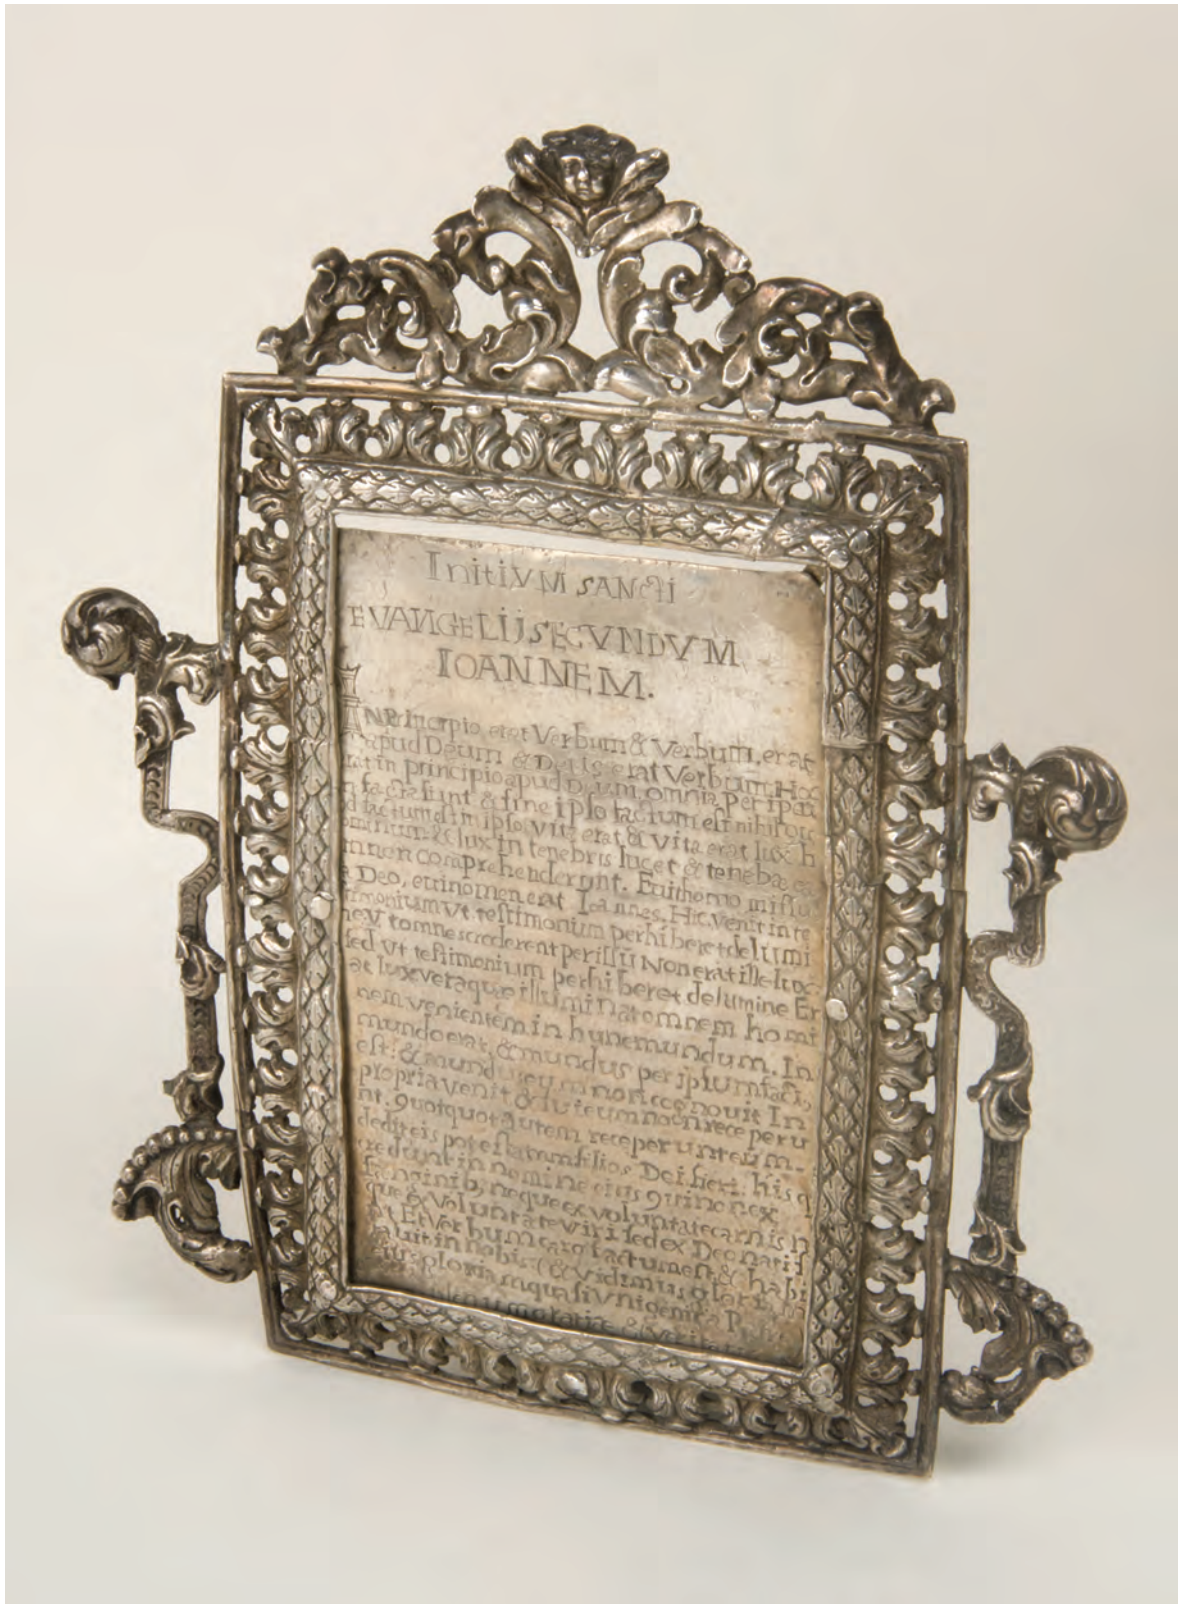 InitiVM SANCTI
EVANGELIJ SECVNDVM
IOANNEM.
IN Principio erat Verbum & Verbum, erat
apud Deum & Deus erat Verbum. Hoc
rat in principio apud Deum, omnia per ipsu
facta sunt & sine ipso factum est nihil
d factum est in ipso, vita erat & vita erat lux h
ominum & lux in tenebris lucet & tenebæ ea
m non comprehenderunt. Fuit homo missus
a Deo, cui nomen erat Ioannes. Hic venit in te
stimonium Vt testimonium perhiberet de lumi
ne Vt omnes crederent per illū Non erat ille lux
sed Vt testimonium perhiberet de lumine Er
at lux vera quæ illuminat omnem homi
nem venientem in hunc mundum. In
mundo erat, & mundus per ipsum fact,
est: & mundus eum non cognouit In
propria venit & sui eum non rece peru
nt. quotquot autem receperunt eum.
dedit eis potestatem filios Dei fieri, his q
credunt in nomine eius qui non ex
sanguinib, neque ex voluntate carnis n
que ex Voluntate viri sed ex Deo nati s
nt Et Verbum caro factum est & habi
tauit in nobis, & vidimus
eius gloriam quasi Vnigeniti
& veritatis